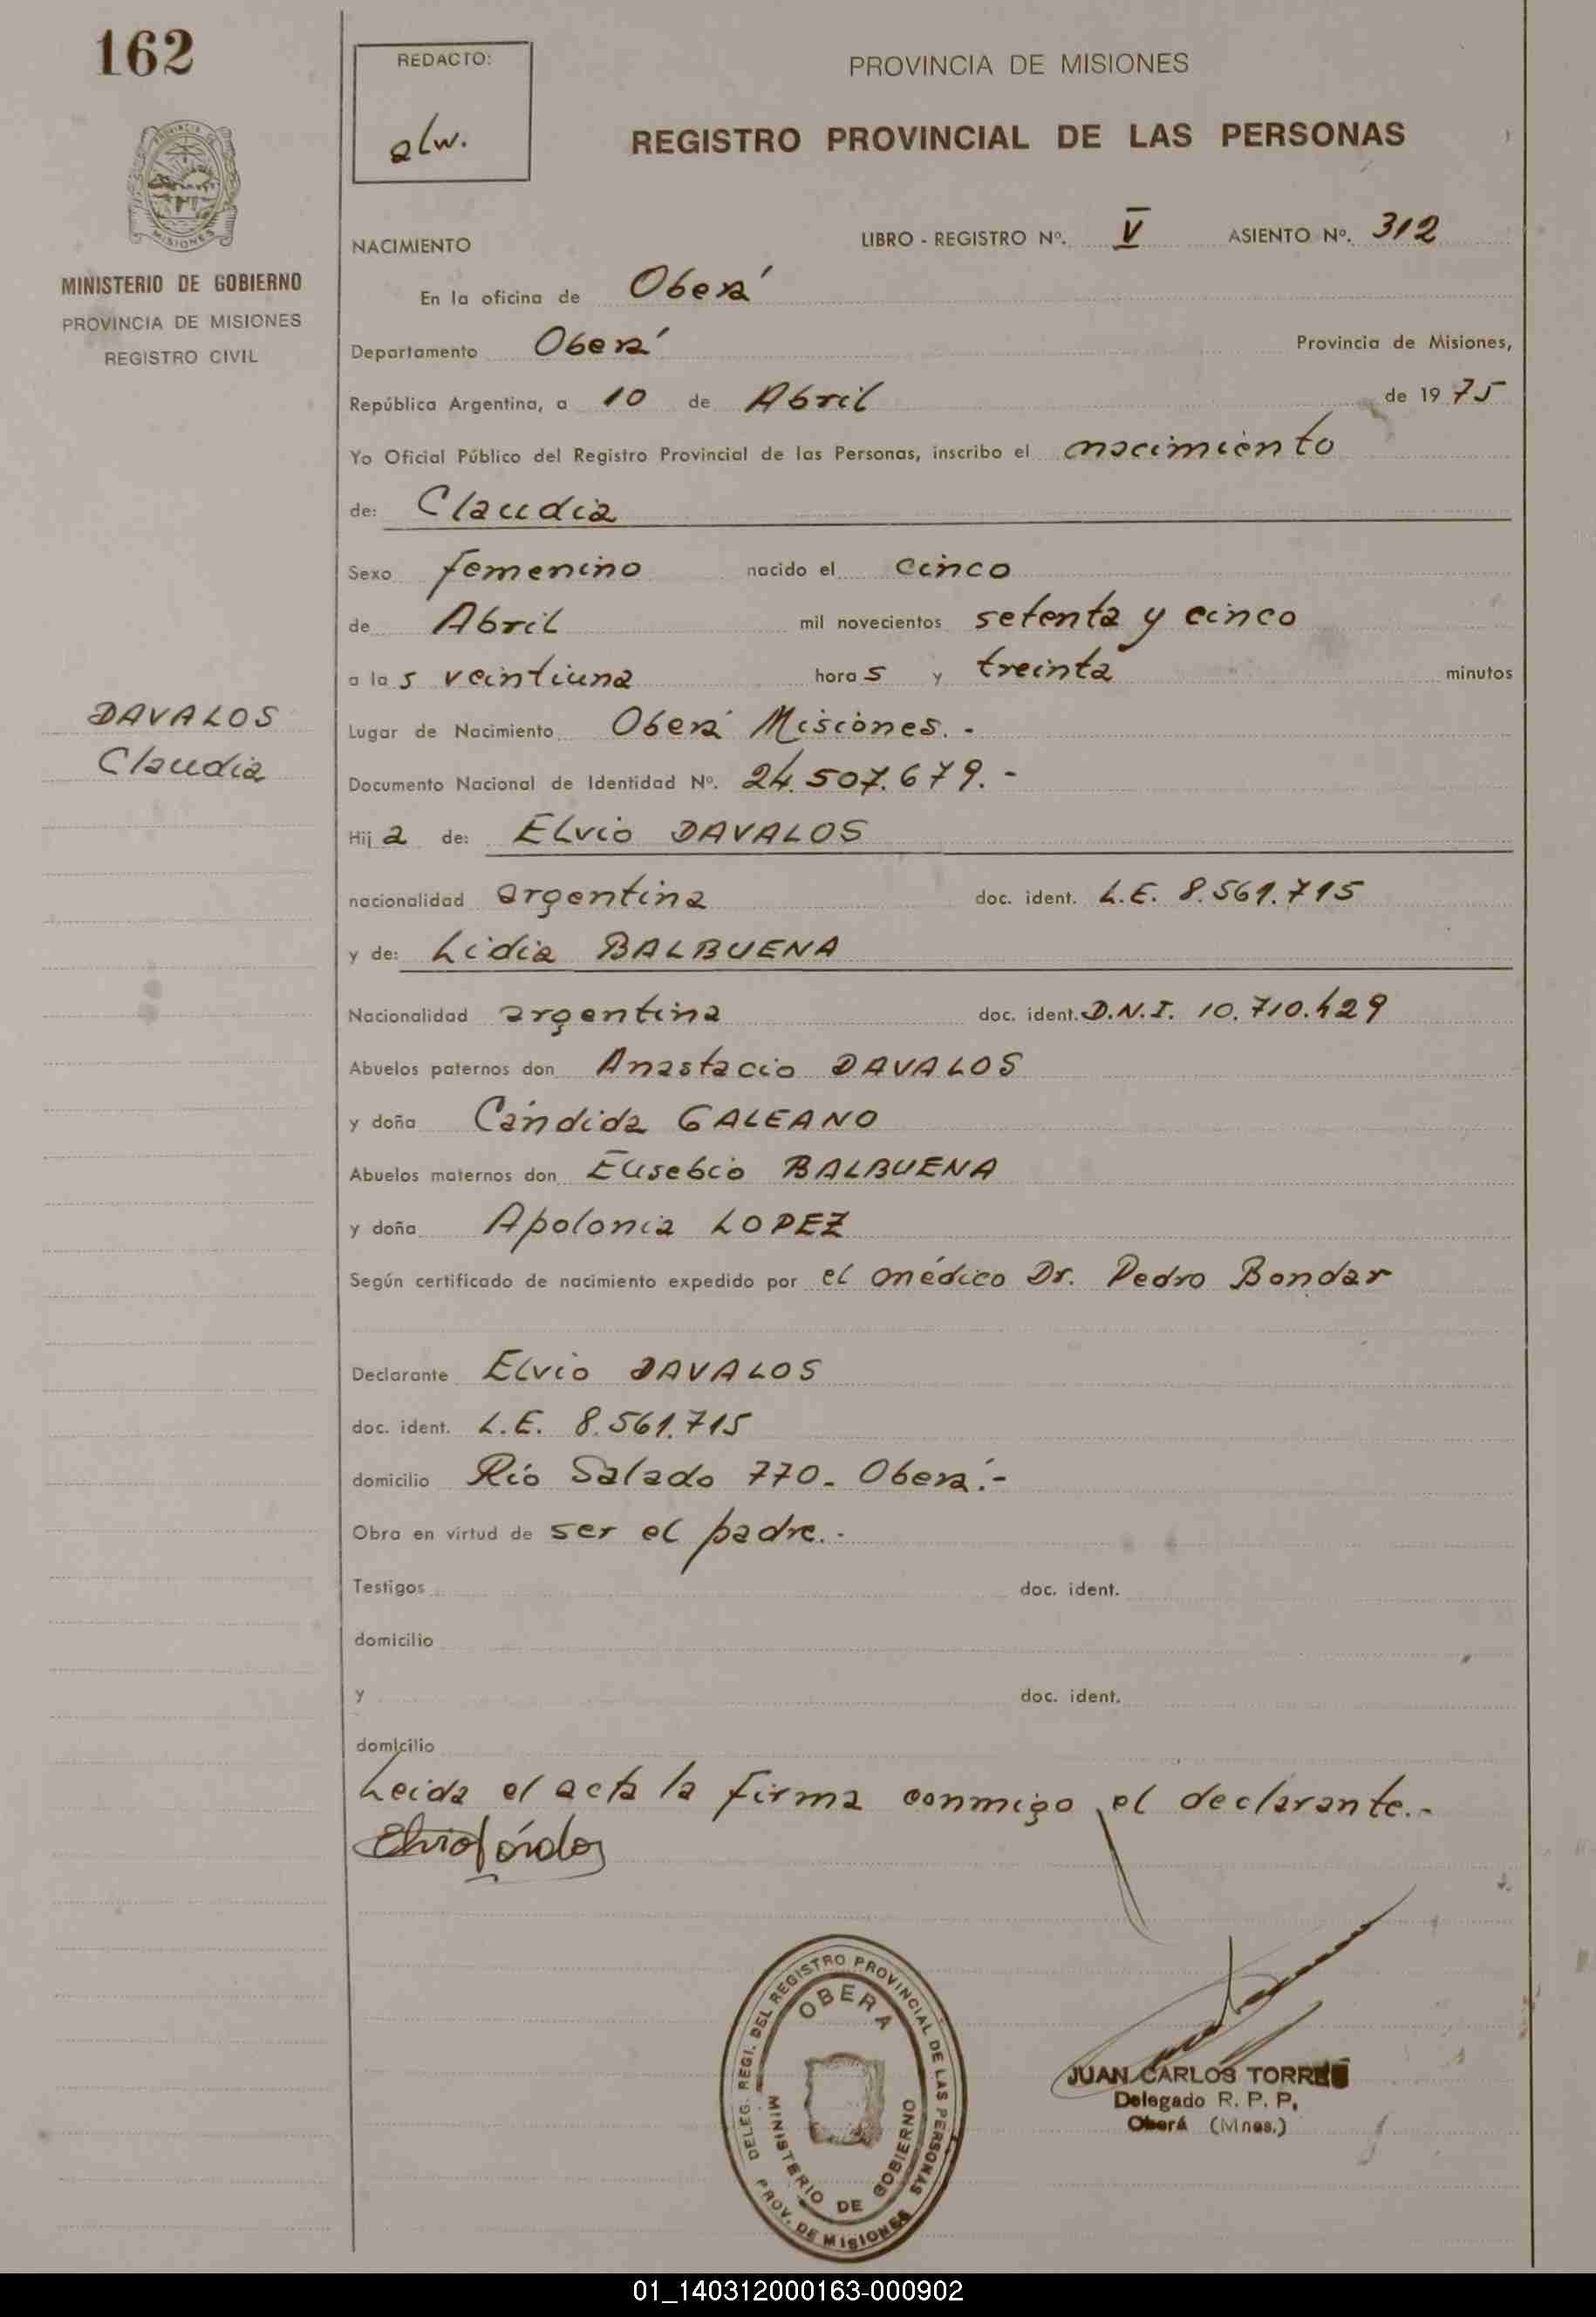 162
REDACTO:
alw.
PROVINCIA DE MISIONES
REGISTRO PROVINCIAL DE LAS PERSONAS
PROVINCIA DE
MISIONES
MINISTERIO DE GOBIERNO
PROVINCIA DE MISIONES
REGISTRO CIVIL
NACIMIENTO LIBRO - REGISTRO Nº. V ASIENTO Nº. 312
En la oficina de Oberá
Departamento Oberá Provincia de Misiones,
República Argentina, a 10 de Abril de 1975
Yo Oficial Público del Registro Provincial de las Personas, inscribo el nacimiento
de: Claudia
Sexo femenino nacido el cinco
de Abril mil novecientos setenta y cinco
a las veintiuna horas y treinta minutos
DAVALOS
Claudia
Lugar de Nacimiento Oberá Misiones.-
Documento Nacional de Identidad Nº. 24.507.679.-
Hija de: Elvio DAVALOS
nacionalidad argentina doc. ident. L.E. 8.561.715
y de: Lidia BALBUENA
Nacionalidad argentina doc. ident. D.N.I. 10.710.429
Abuelos paternos don Anastacio DAVALOS
y doña Cándida GALEANO
Abuelos maternos don Eusebio BALBUENA
y doña Apolonia LOPEZ
Según certificado de nacimiento expedido por el médico Dr. Pedro Bondar
Declarante Elvio DAVALOS
doc. ident. L.E. 8.561.715
domicilio Río Salado 770- Oberá.-
Obra en virtud de ser el padre.-
Testigos doc. ident.
domicilio
y doc. ident.
domicilio
Leida el acta la firma conmigo el declarante.-
DELEG. REGI. DEL REGISTRO PROVINCIAL DE LAS PERSONAS
OBERA
MINISTERIO DE GOBIERNO
PROV. DE MISIONES
JUAN CARLOS TORRES
Delegado R. P. P.
Oberá (Mnes.)
01_140312000163-000902